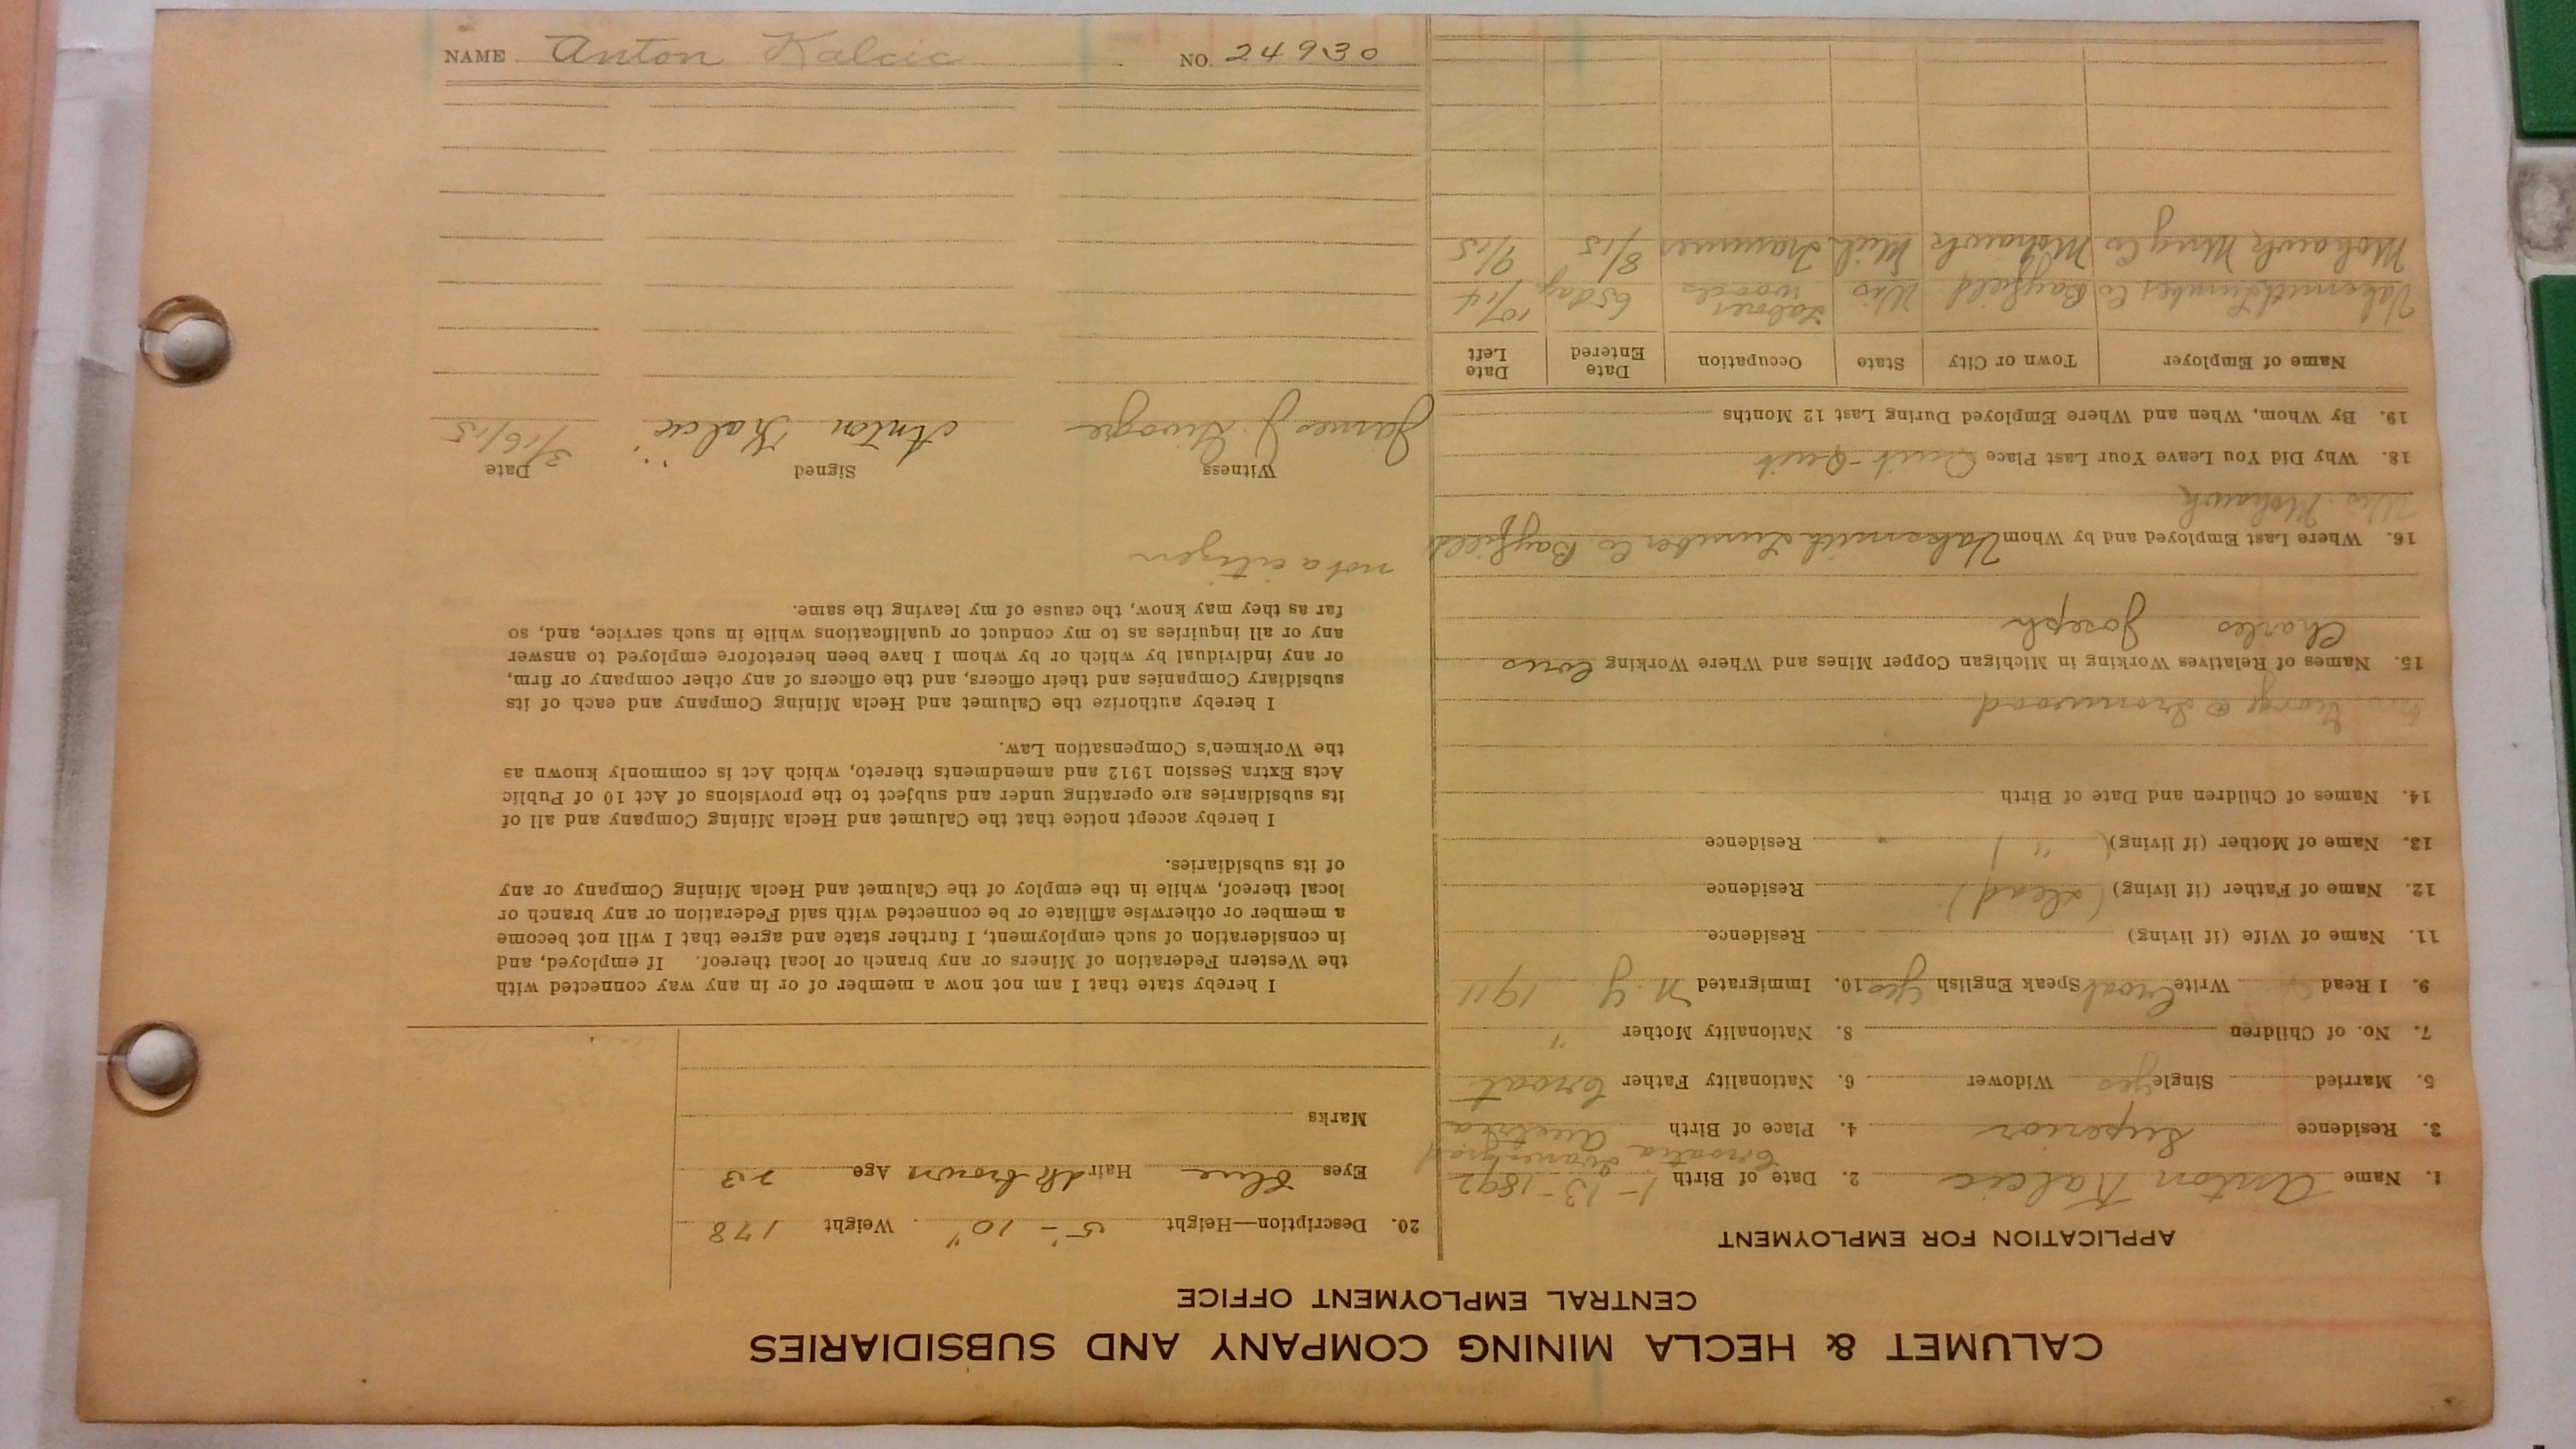 CALUMET & HECLA MINING COMPANY AND SUBSIDIARIES
CENTRAL EMPLOYMENT OFFICE
APPLICATION FOR EMPLOYMENT
1. Name Anton Kalcic 2. Date of Birth 1-13-1892
Croatia
3. Residence Superior 4. Place of Birth Austria
5. Married Single yes Widower 6. Nationality Father Croat
7. No. of Children 8. Nationality Mother "
9. I Read Write Croat Speak English yes 10. Immigrated N Y 1911
11. Name of Wife (if living) Residence
12. Name of Father (if living) (dead) Residence
13. Name of Mother (if living) ( " ) Residence
14. Names of Children and Date of Birth
George @ Ironwood
15. Names of Relatives Working in Michigan Copper Mines and Where Working Cous
Charles Joseph
16. Where Last Employed and by Whom Lumber Co Bayfield
Wis. Mohawk
18. Why Did You Leave Your Last Place Quit-Quit
19. By Whom, When and Where Employed During Last 12 Months
Name of Employer Town or City State Occupation Date Entered Date Left
Lumber Co Bayfield Wis Laborer woods 65 days 10/14
Mohawk Mng Co Mohawk Mich Trammer 8/15 9/15
20. Description—Height 5'-10" Weight 178
Eyes blue Hair dk brown Age 23
Marks
I hereby state that I am not now a member of or in any way connected with
the Western Federation of Miners or any branch or local thereof. If employed, and
in consideration of such employment, I further state and agree that I will not become
a member or otherwise affiliate or be connected with said Federation or any branch or
local thereof, while in the employ of the Calumet and Hecla Mining Company or any
of its subsidiaries.
I hereby accept notice that the Calumet and Hecla Mining Company and all of
its subsidiaries are operating under and subject to the provisions of Act 10 of Public
Acts Extra Session 1912 and amendments thereto, which Act is commonly known as
the Workmen's Compensation Law.
I hereby authorize the Calumet and Hecla Mining Company and each of its
subsidiary Companies and their officers, and the officers of any other company or firm,
or any individual by which or by whom I have been heretofore employed to answer
any or all inquiries as to my conduct or qualifications while in such service, and, so
far as they may know, the cause of my leaving the same.
not a citizen
Witness Signed Date
James J. Anton Kalcic 3/16/15
NAME Anton Kalcic NO. 24930